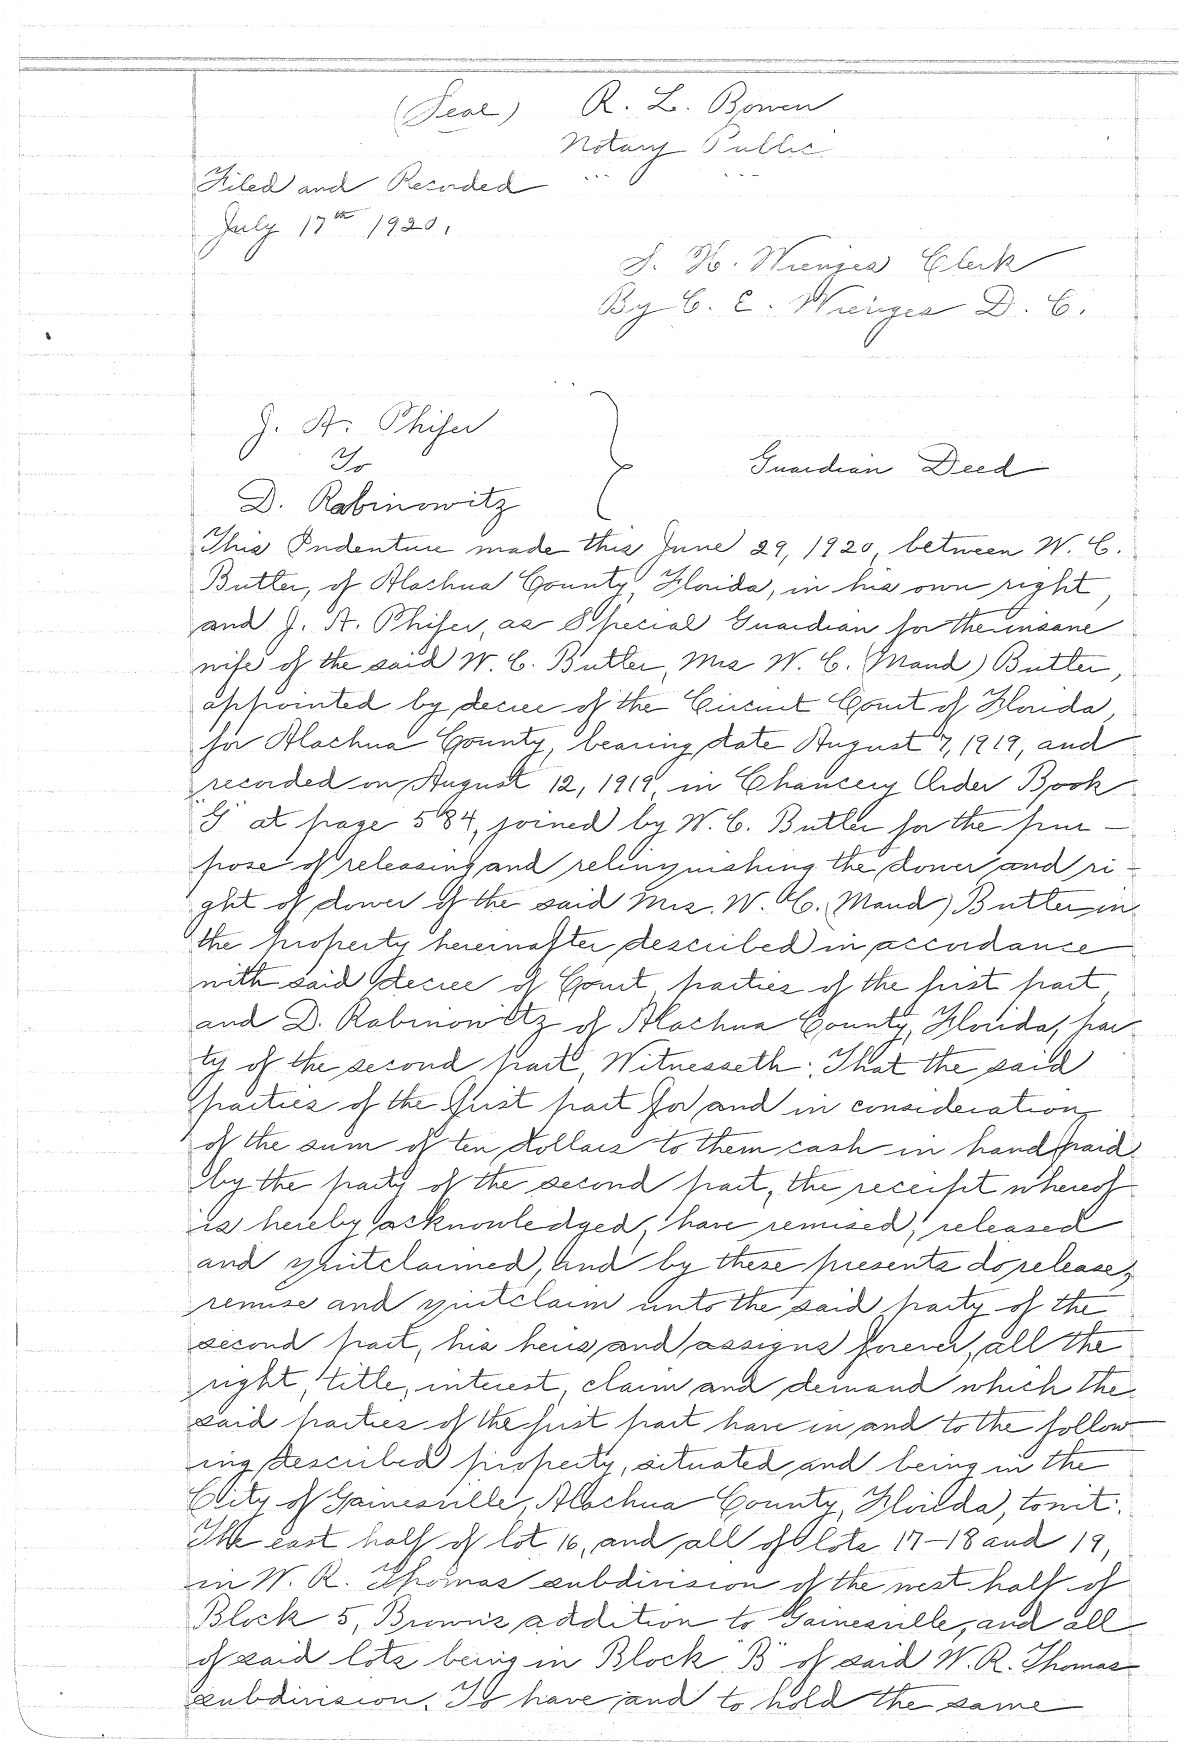 (Seal) R. L. Bowen
Notary Public
Filed and Recorded
July 17th 1920.
S. H. Wienges Clerk
By C. E. Wienges D. C.
J. A. Phifer
To
D. Rabinowitz
Guardian Deed
This Indenture made this June 29, 1920, between W. C.
Butler, of Alachua County, Florida, in his own right,
and J. A. Phifer, as Special Guardian for the insane
wife of the said W. C. Butler, Mrs W. C. (Maud) Butler,
appointed by decree of the Circuit Court of Florida,
for Alachua County, bearing date August 7, 1919, and
recorded on August 12, 1919, in Chancery Order Book
"G" at page 584, joined by W. C. Butler for the pur-
pose of releasing and relinquishing the dower and ri-
ght of dower of the said Mrs. W. C. (Maud) Butler in
the property hereinafter described in accordance
with said decree of Court, parties of the first part,
and D. Rabinowitz of Alachua County, Florida, par
ty of the second part, Witnesseth: That the said
parties of the first part for and in consideration
of the sum of ten dollars to them cash in hand paid
by the party of the second part, the receipt whereof
is hereby acknowledged, have remised, released
and quitclaimed, and by these presents do release,
remise and quitclaim unto the said party of the
second part, his heirs and assigns forever, all the
right, title, interest, claim and demand which the
said parties of the first part have in and to the follow
ing described property, situated and being in the
City of Gainesville, Alachua County, Florida, towit:
The east half of lot 16, and all of lots 17-18 and 19,
in W. R. Thomas subdivision of the west half of
Block 5, Brown's addition to Gainesville, and all
of said lots being in Block "B" of said W. R. Thomas
subdivision. To have and to hold the same